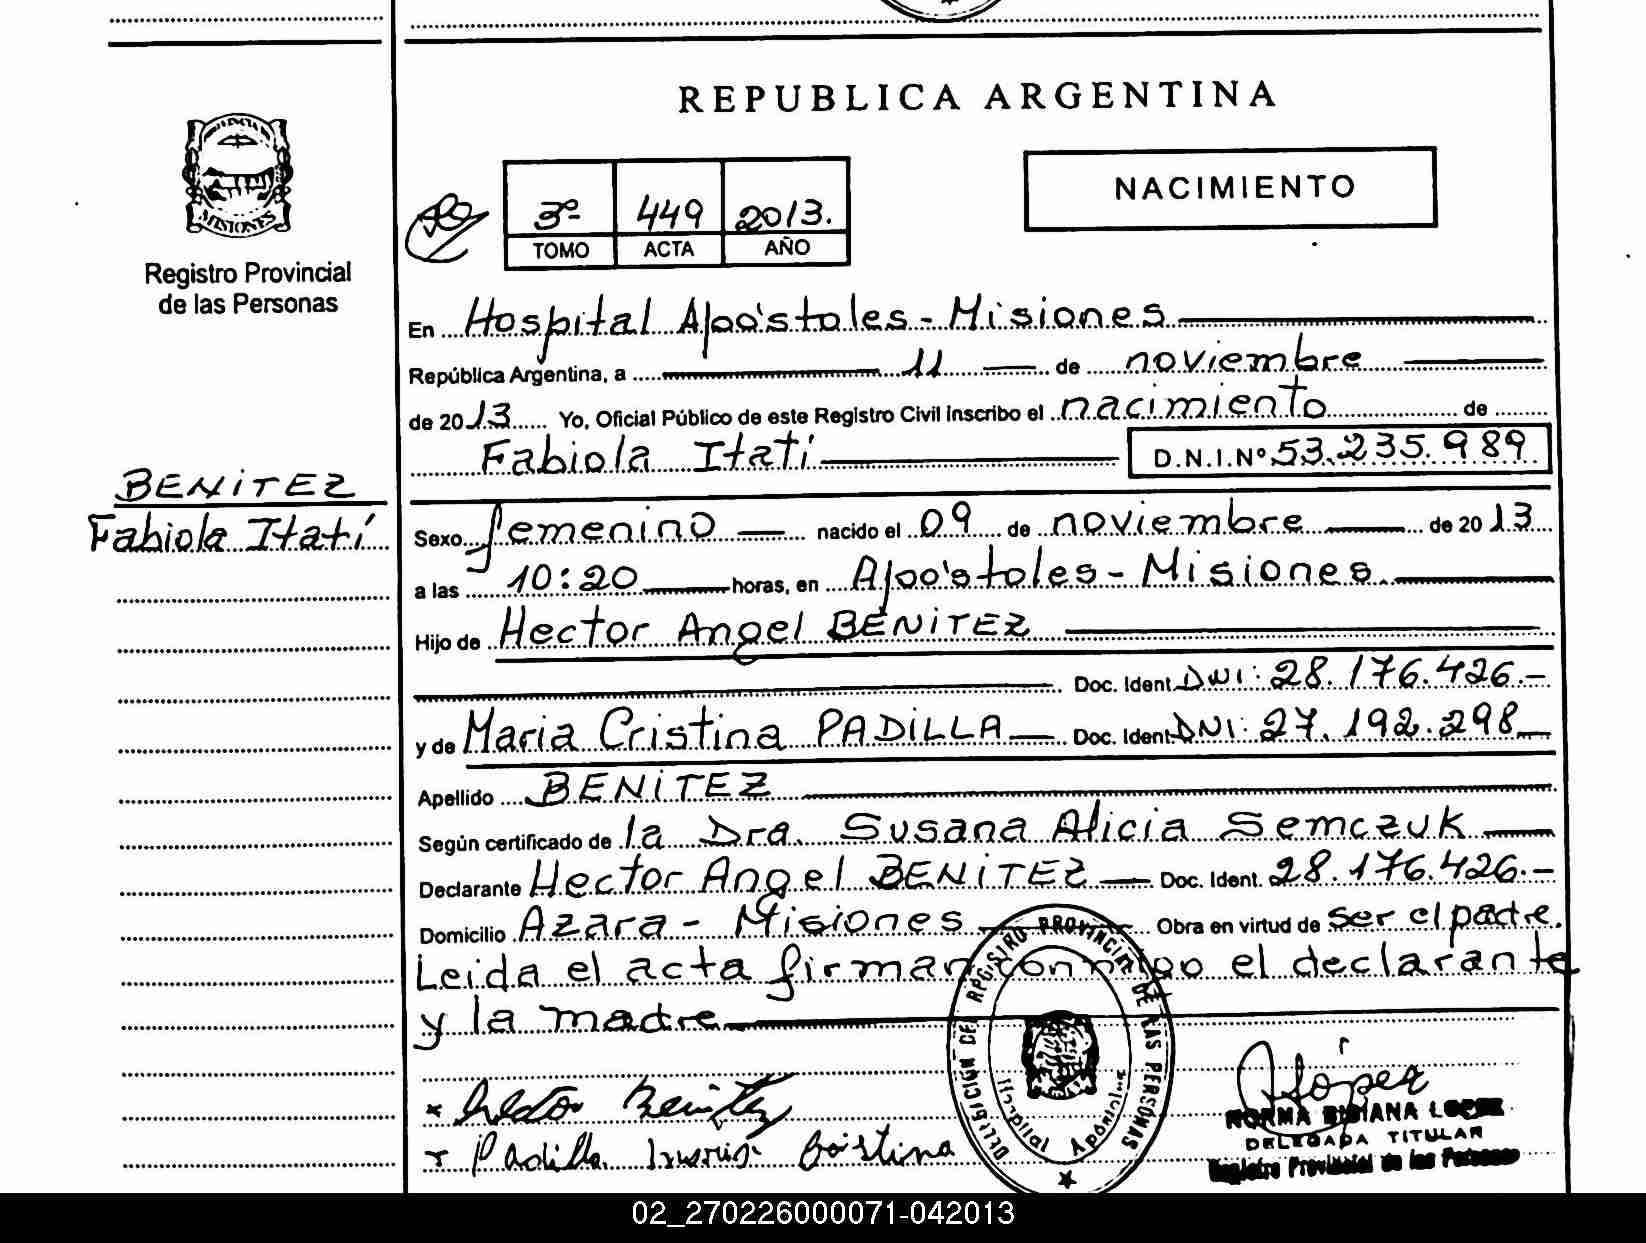 REPUBLICA ARGENTINA
MISIONES
Registro Provincial
de las Personas
3º 449 2013.
TOMO ACTA AÑO
NACIMIENTO
En Hospital Apóstoles - Misiones
República Argentina, a 11 de noviembre
de 2013 Yo, Oficial Público de este Registro Civil inscribo el nacimiento de
Fabiola Itatí D.N.I.Nº 53.235.989
BENITEZ
Fabiola Itatí
Sexo femenino nacido el 09 de noviembre de 2013
a las 10:20 horas, en Apóstoles - Misiones.
Hijo de Hector Angel BENITEZ
Doc. Ident. DNI: 28.176.426.-
y de Maria Cristina PADILLA Doc. Ident. DNI: 27.192.298
Apellido BENITEZ
Según certificado de la Dra. Susana Alicia Semczuk
Declarante Hector Angel BENITEZ Doc. Ident. 28.176.426.-
Domicilio Azara - Misiones Obra en virtud de ser el padre.
Leida el acta firman conmigo el declarante
y la madre
PROVINCIAL DE LAS PERSONAS
Hospital Apóstoles
Hector Benitez
Padilla Maria Cristina
López
NORMA BIBIANA LOPEZ
DELEGADA TITULAR
Registro Provincial de las Personas
02_270226000071-042013